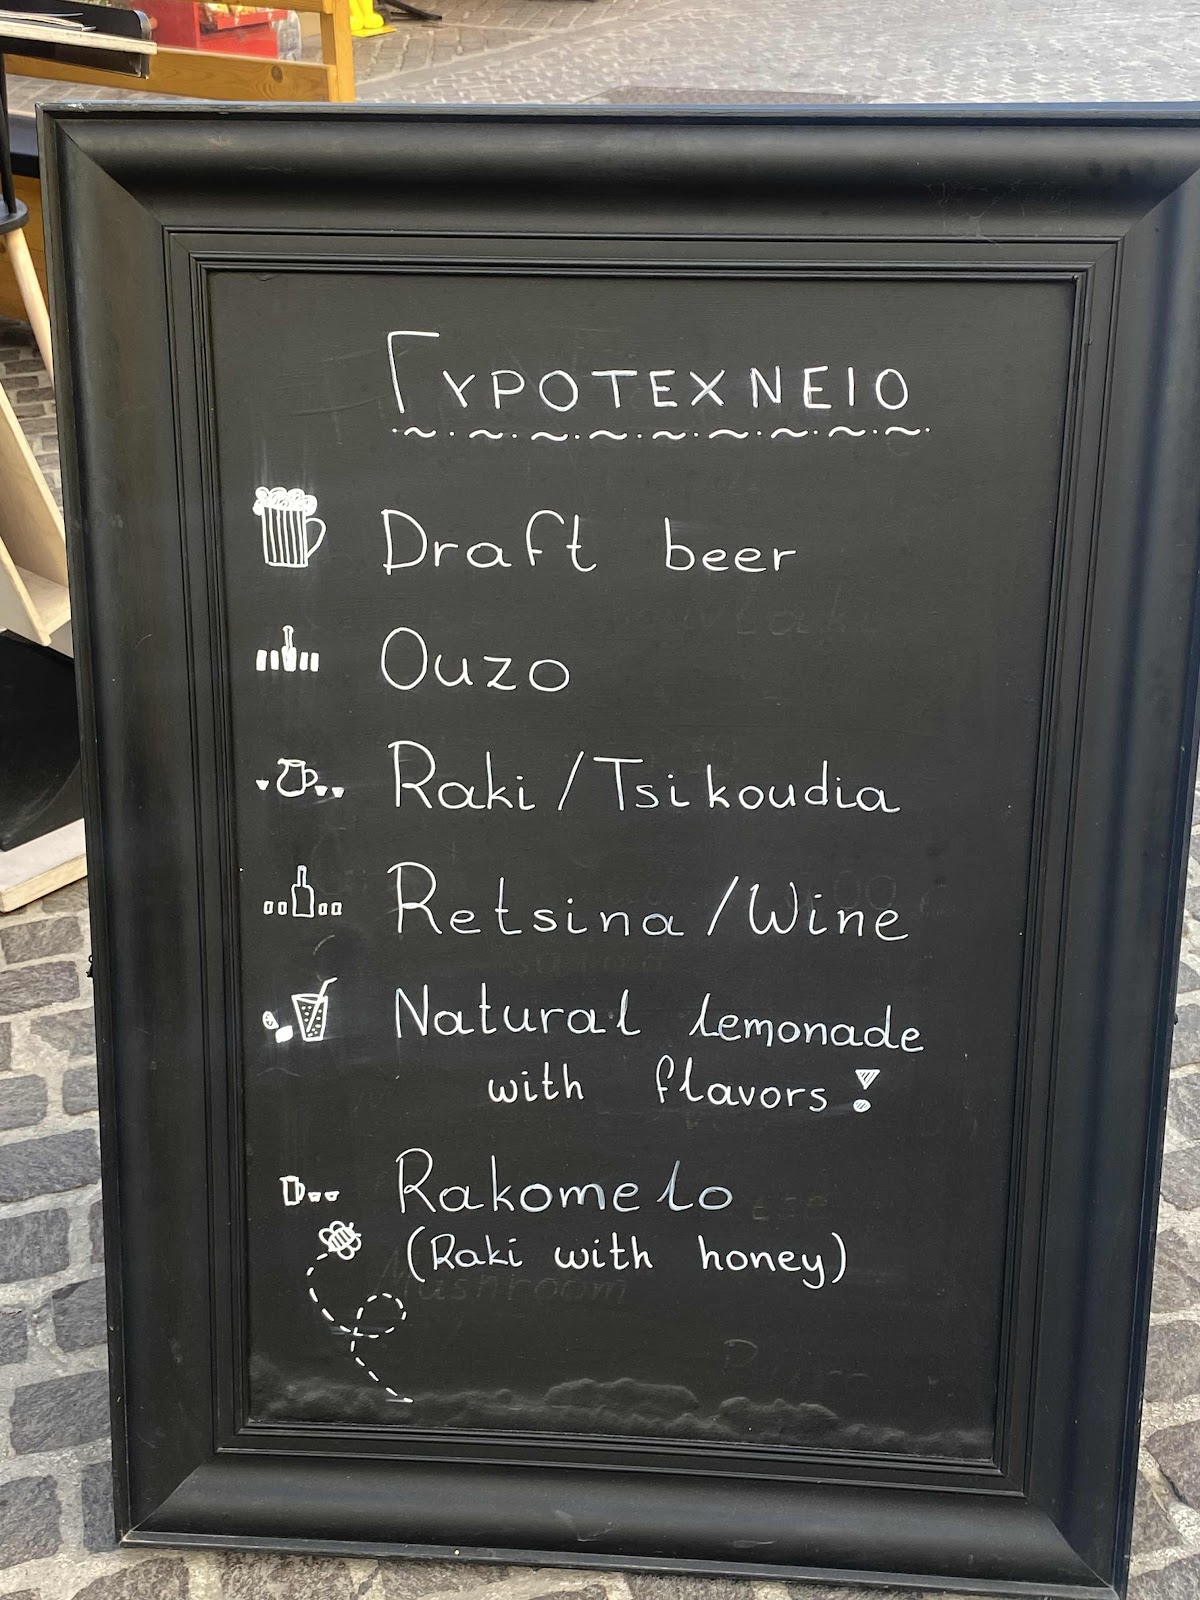 ΓΥΡΟΤΕΧΝΕΙΟ
Draft beer
Ouzo
Raki/Tsikoudia
Retsina/Wine
Natural lemonade
with flavors!
Rakomelo
(Raki with honey)
Mushroom